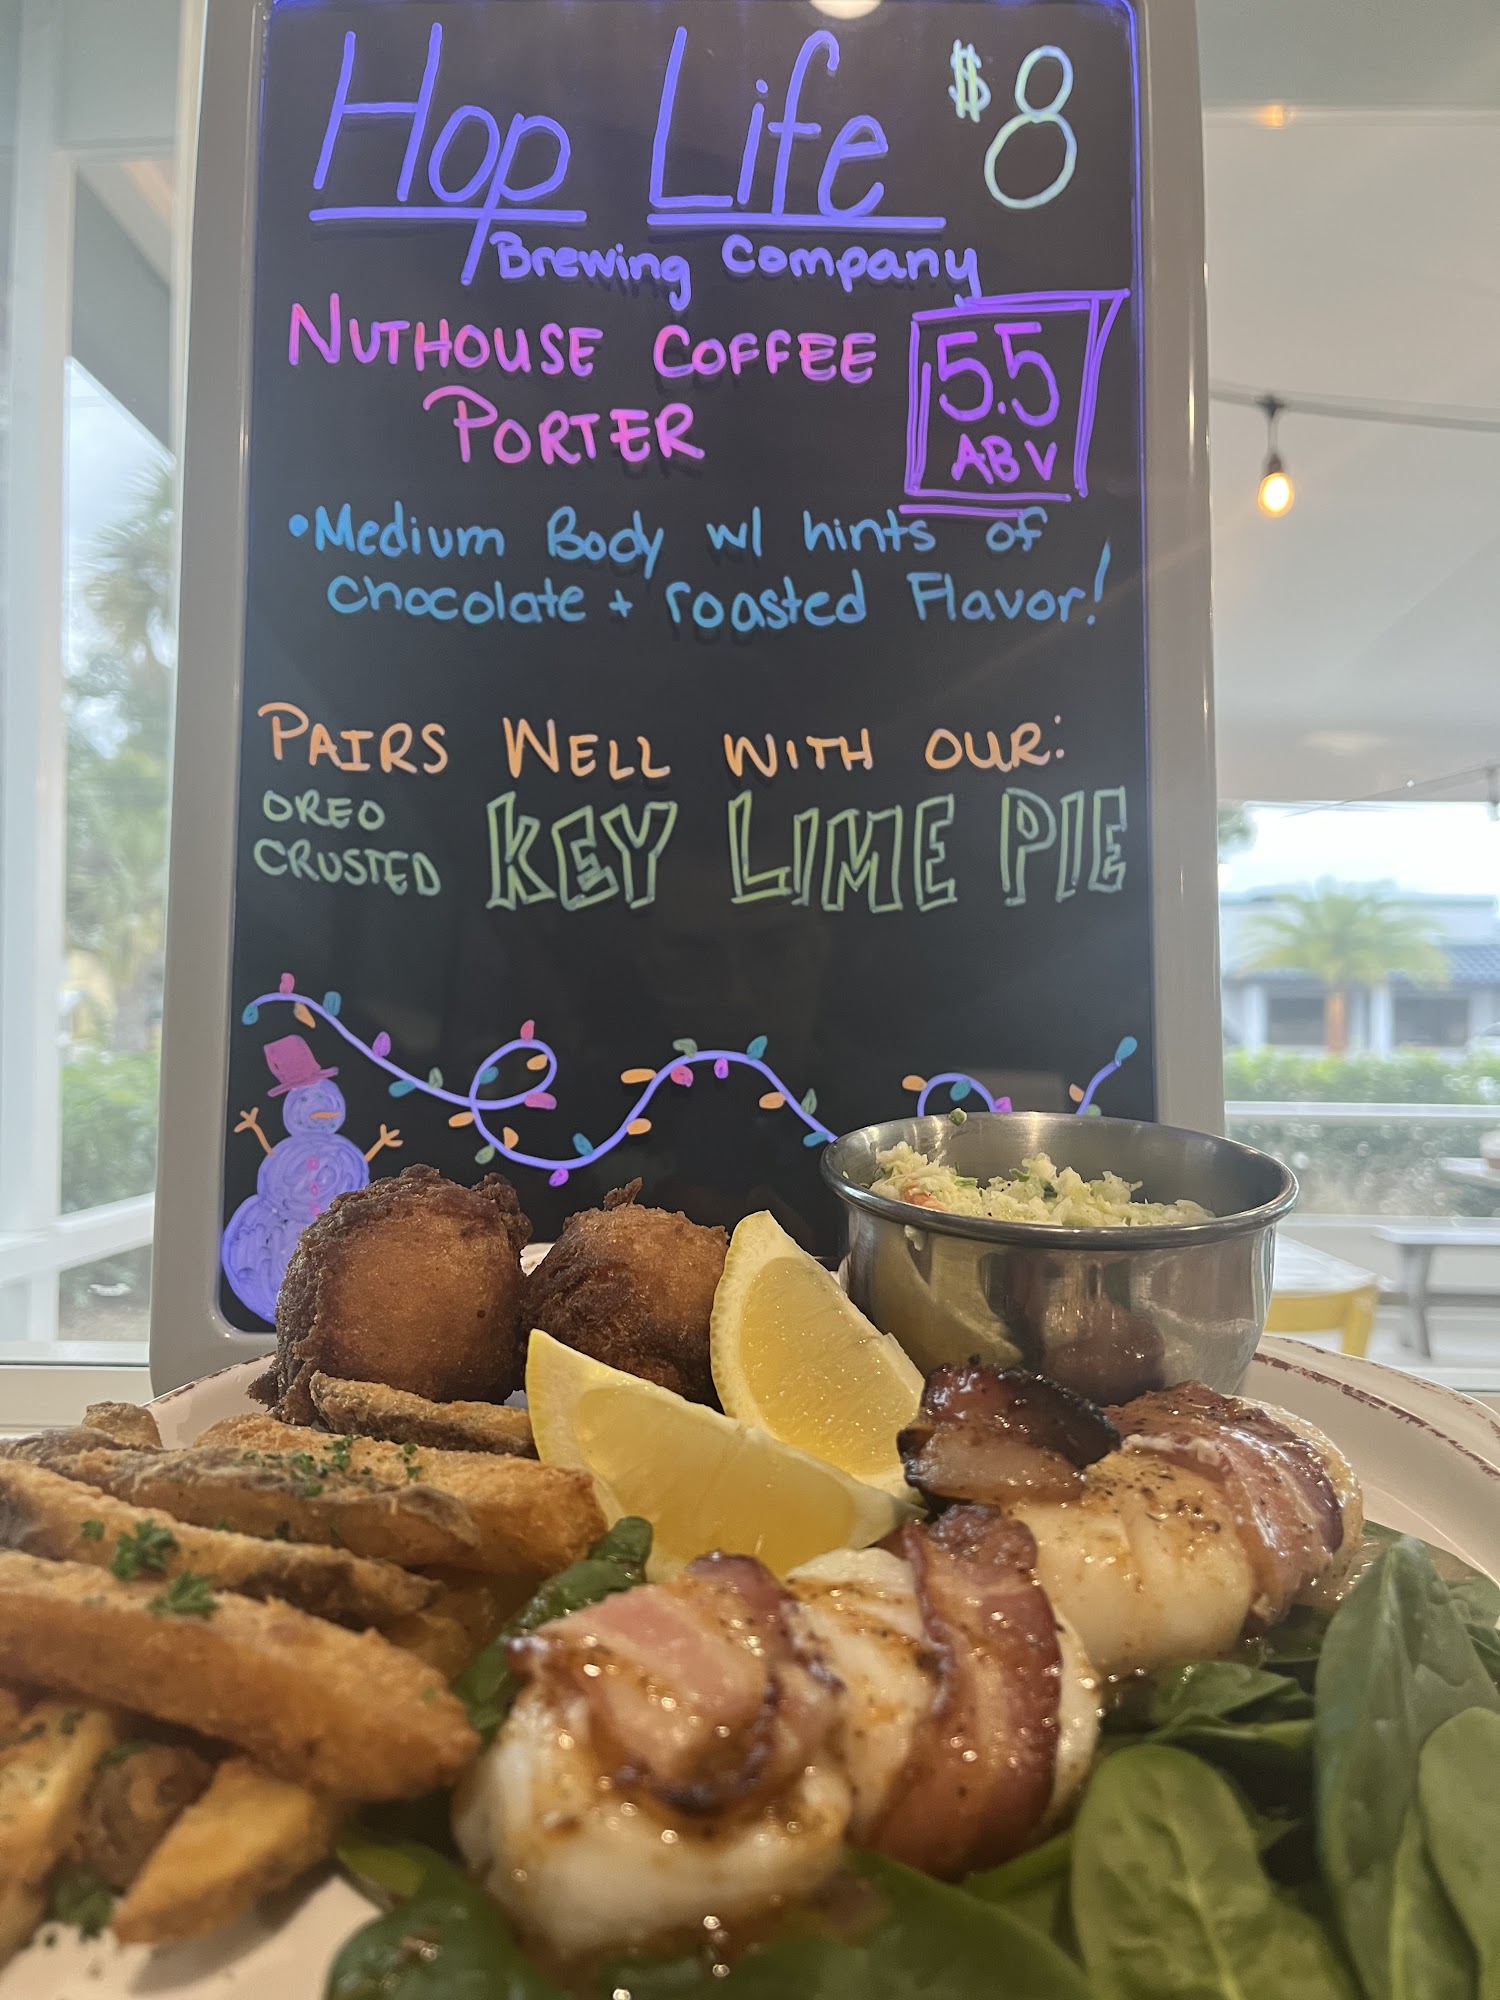 Hop Life $8
Brewing Company
NUTHOUSE COFFEE
PORTER
5.5
ABV
• Medium Body w/ hints of
chocolate + roasted Flavor!
PAIRS WELL WITH OUR:
OREO
CRUSTED
KEY LIME PIE